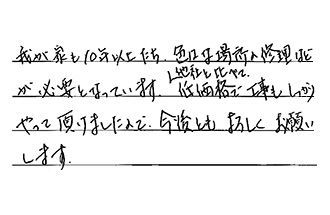 我が家も10年以上たち、色々な場所の修理など
が必要となっています。他社と比べて、低価格で工事もしっかり
やって頂けましたので、今後ともよろしくお願い
します。